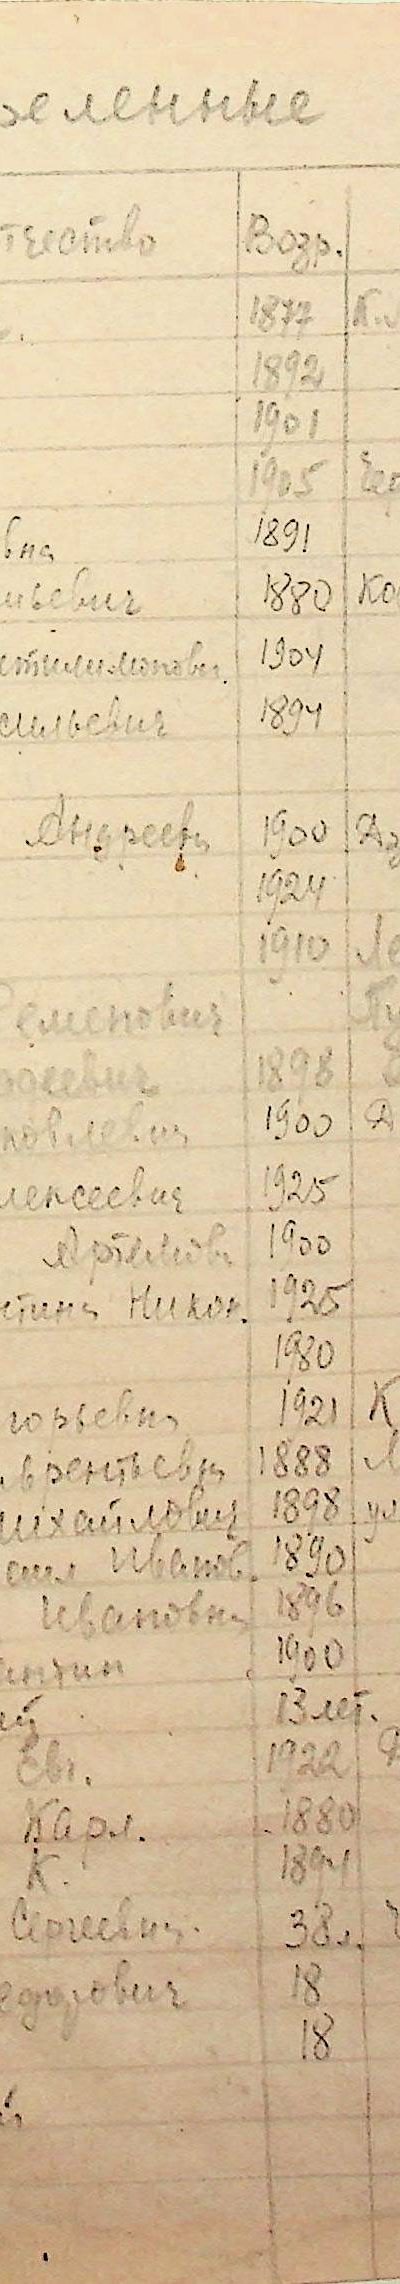 еленные
тчество Возр.
1877 К.
1892
1901
1905
вна 1891
льевич 1880 Ко
нтилимонови. 1904
сильевич 1894
Андреевн 1900
1924
1910 Ле
Семенович Пу
1898
ковлевич 1900 А
лексеевич 1925
Артемов 1900
нтина Никон. 1925
1980
горьевна 1921 К
врентьевна 1888 Л
Михайлович 1898 ул
Иванов. 1890
Ивановна 1896
антин 1900
ий 13 лет.
Евг. 1922
Карл. 1880
К. 1894
Сергеевич. 38 л.
едорович 18
18
й